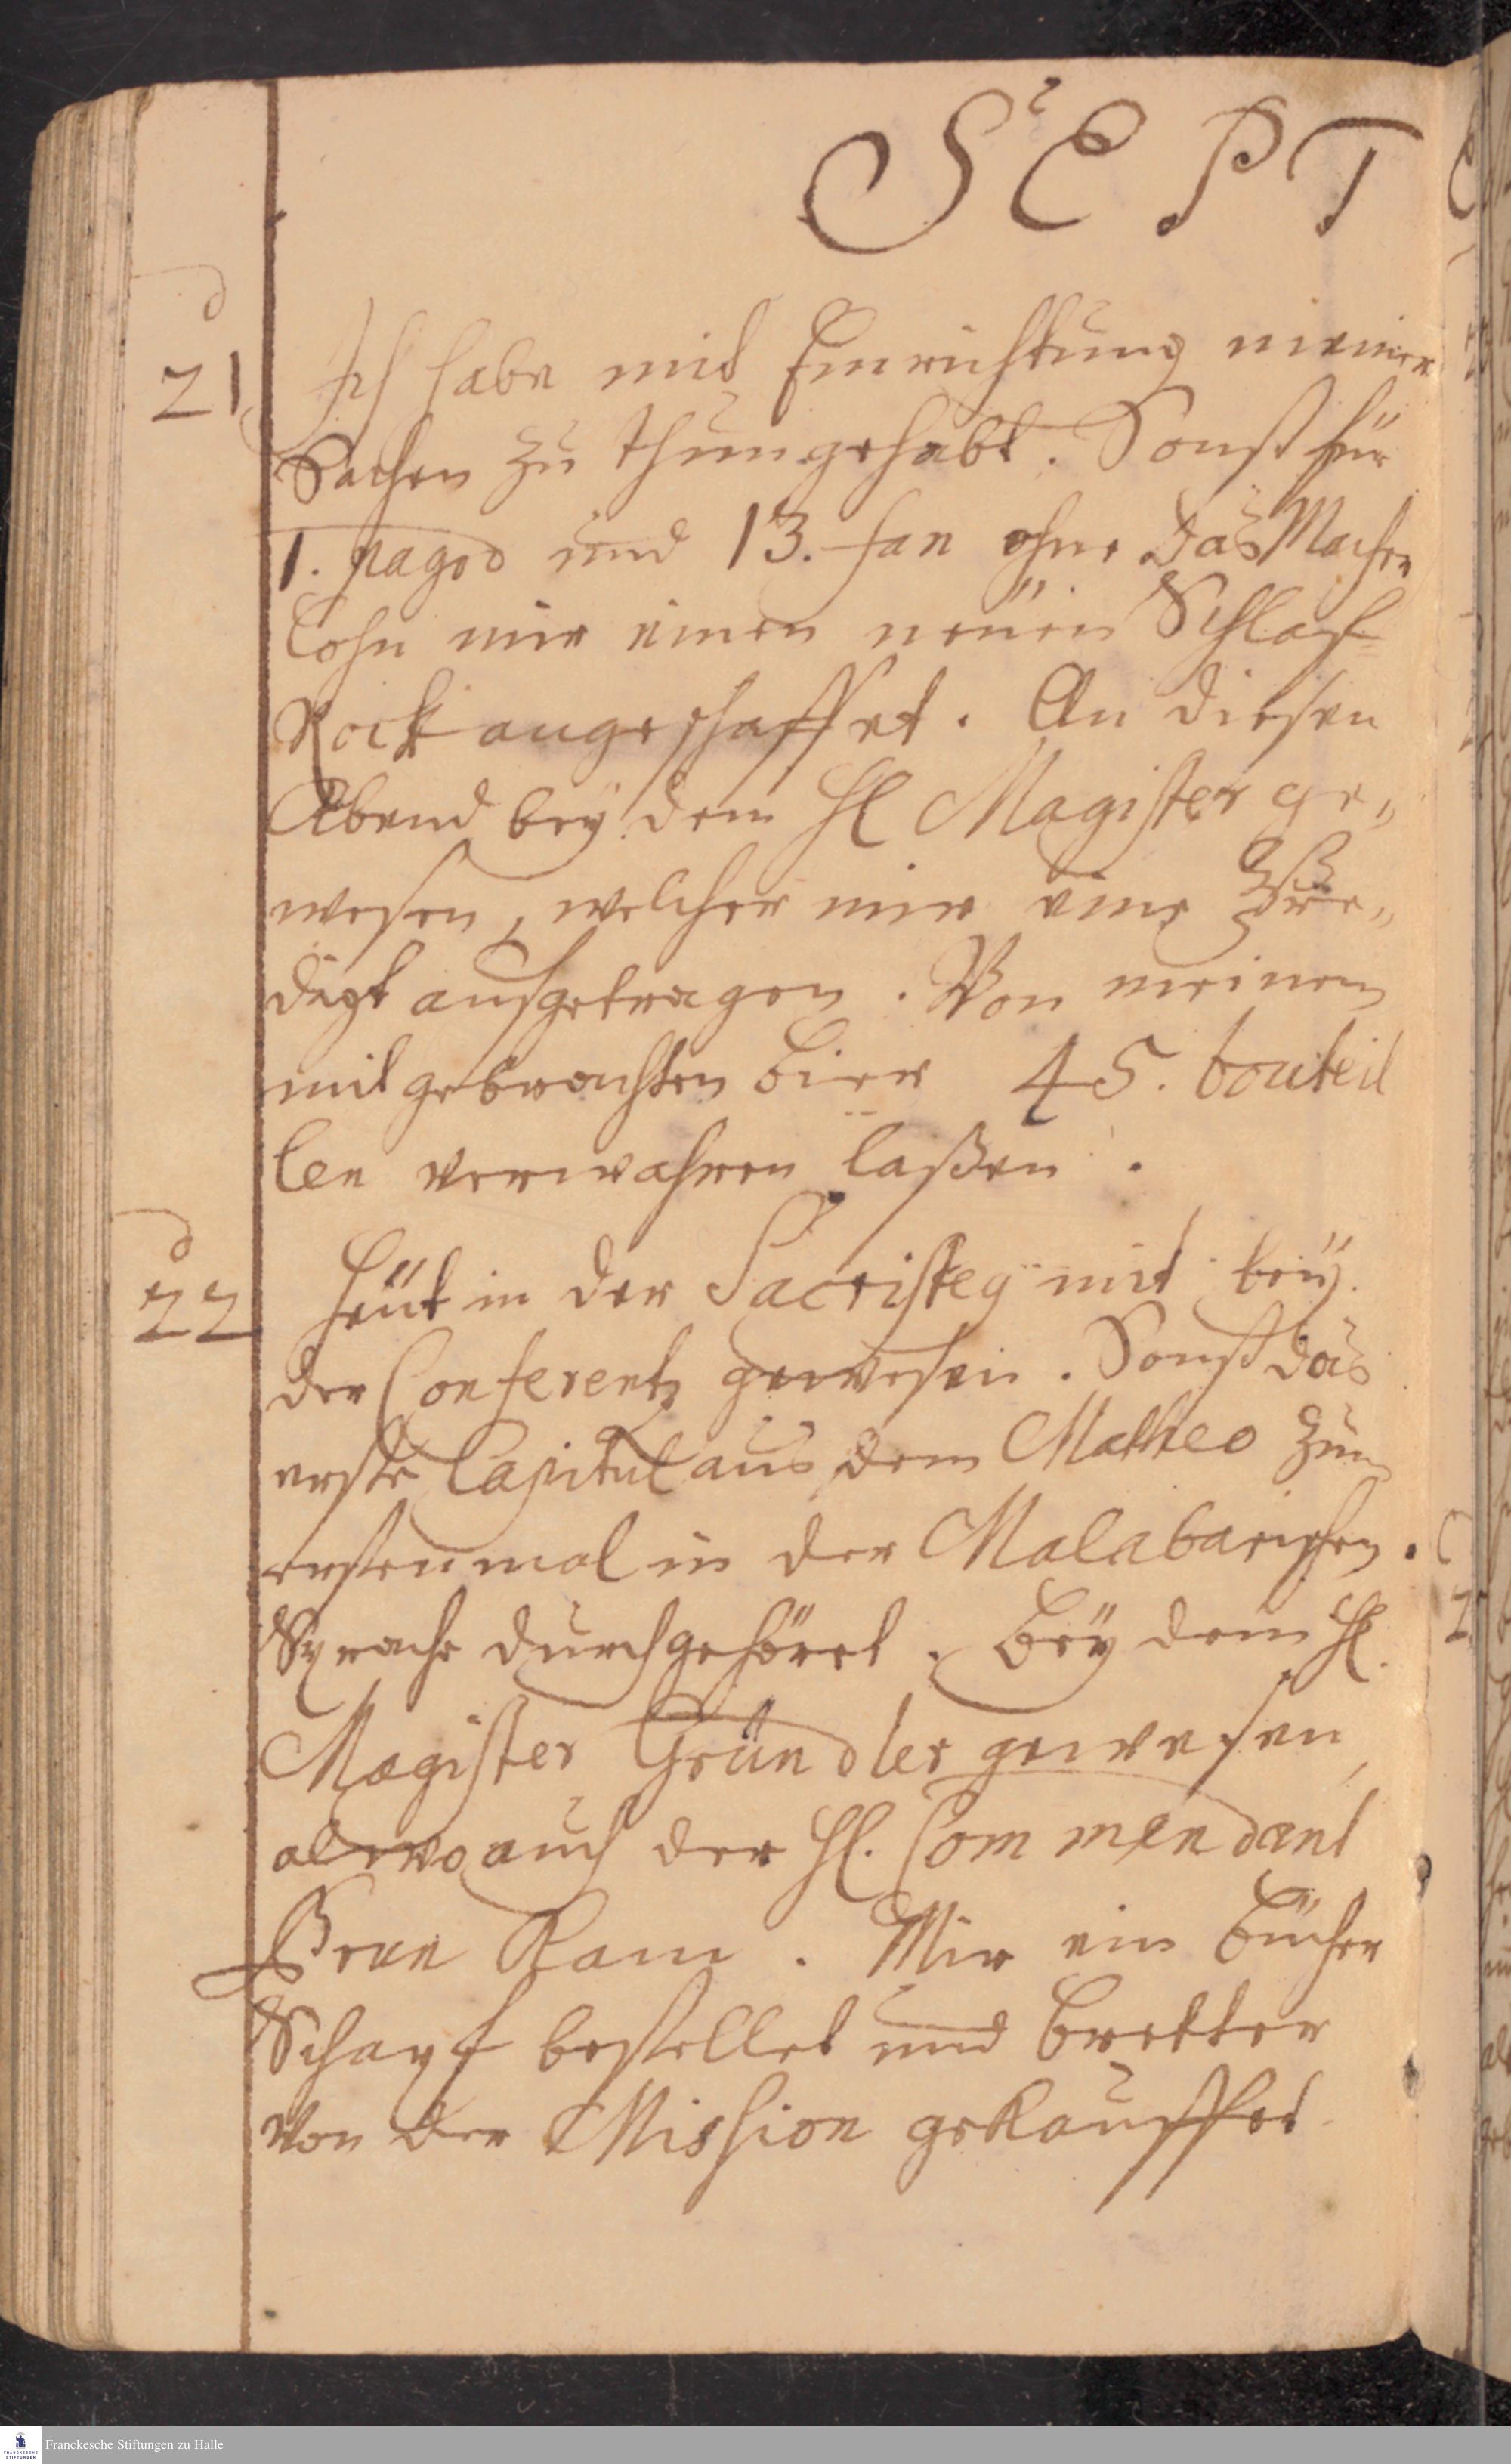 SEPT
d
21 Ich habe mit Einrichtung meiner
Sachen zu thun gehabt. Sonst für
1. pagod und 13. fan ohne das Macher
lohn mir einen neüen Schlaf-
Rock angeschaffet. An diesen
Abend bey dem Hl Magister ge„
wesen, welcher mir eine Pre„
digt aufgetragen. Von meinem
mitgebrachten Bier 45. bouteil
len verwahren laßen.
d
22 Heüt in der Sacristey mit bey
der Conferentz gewesen. Sonst das
erste Capitul aus dem Mattheo zum
erstenmal in der Malabarischen
Sprache durchgehöret. Bey dem Hl.
Magister Gründler gewesen,
alwo auch der Hl. Commendant
Bran Kam. Mir ein Bücher
Schapf bestellet und Bretter
von der Mission gekauffet
Franckesche Stiftungen zu Halle
FRANCKESCHE
STIFTUNGEN